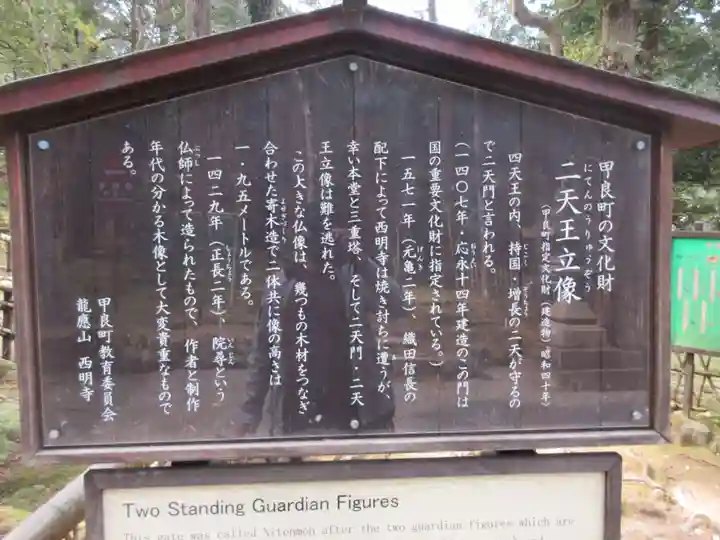 甲良町の文化財
にてんのうりゅうぞう
二天王立像
(甲良町指定文化財(建造物)昭和四十年)
四天王の内、持国・増長の二天が守るの
で二天門と言われる。
(一四〇七年・応永十四年建造のこの門は
国の重要文化財に指定されている。)
一五七一年(元亀二年)、織田信長の
配下によって西明寺は焼き討ちに遭うが、
幸い本堂と三重塔、そして二天門・二天
王立像は難を逃れた。
この大きな仏像は、幾つもの木材をつなぎ
合わせた寄木造で二体共に像の高さは
一・九五メートルである。
一四二九年(正長二年)、院尋という
仏師によって造られたもので、作者と制作
年代の分かる木像として大変貴重なもので
ある。
甲良町教育委員会
龍應山 西明寺
Two Standing Guardian Figures
This gate was called Nitenmon after the two guardian figures which are